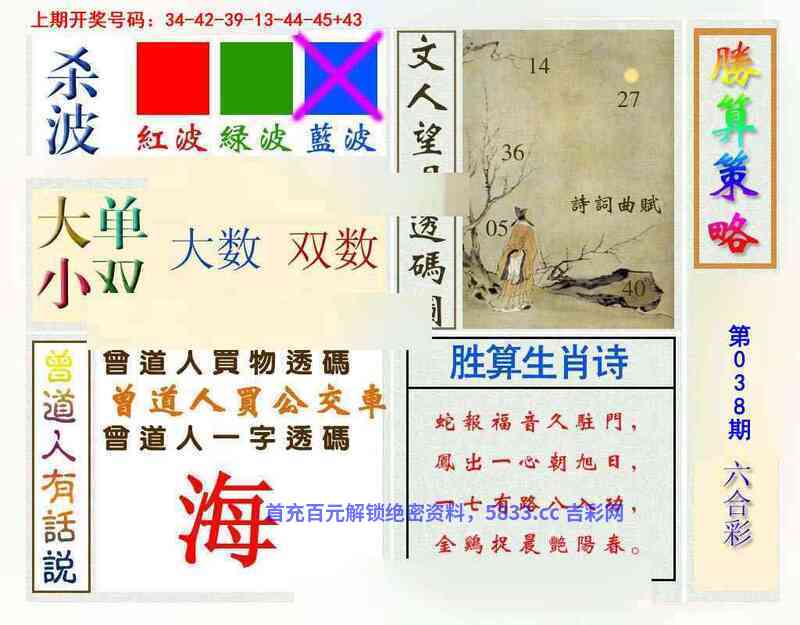 上期开奖号码：34-42-39-13-44-45+43
杀波
紅波 緑波 藍波
大小 单双
大数 双数
文人望
透碼
14
27
36
05
40
詩詞曲賦
勝算策略
第038期
六合彩
曾道人有話説
曾道人買物透碼
曾道人買公交車
曾道人一字透碼
海
胜算生肖诗
蛇報福音久駐門，
鳳出一心朝旭日，
一七有路八入功，
金鷄捉晨艷陽春。
首充百元解锁绝密资料，5833.cc 吉彩网